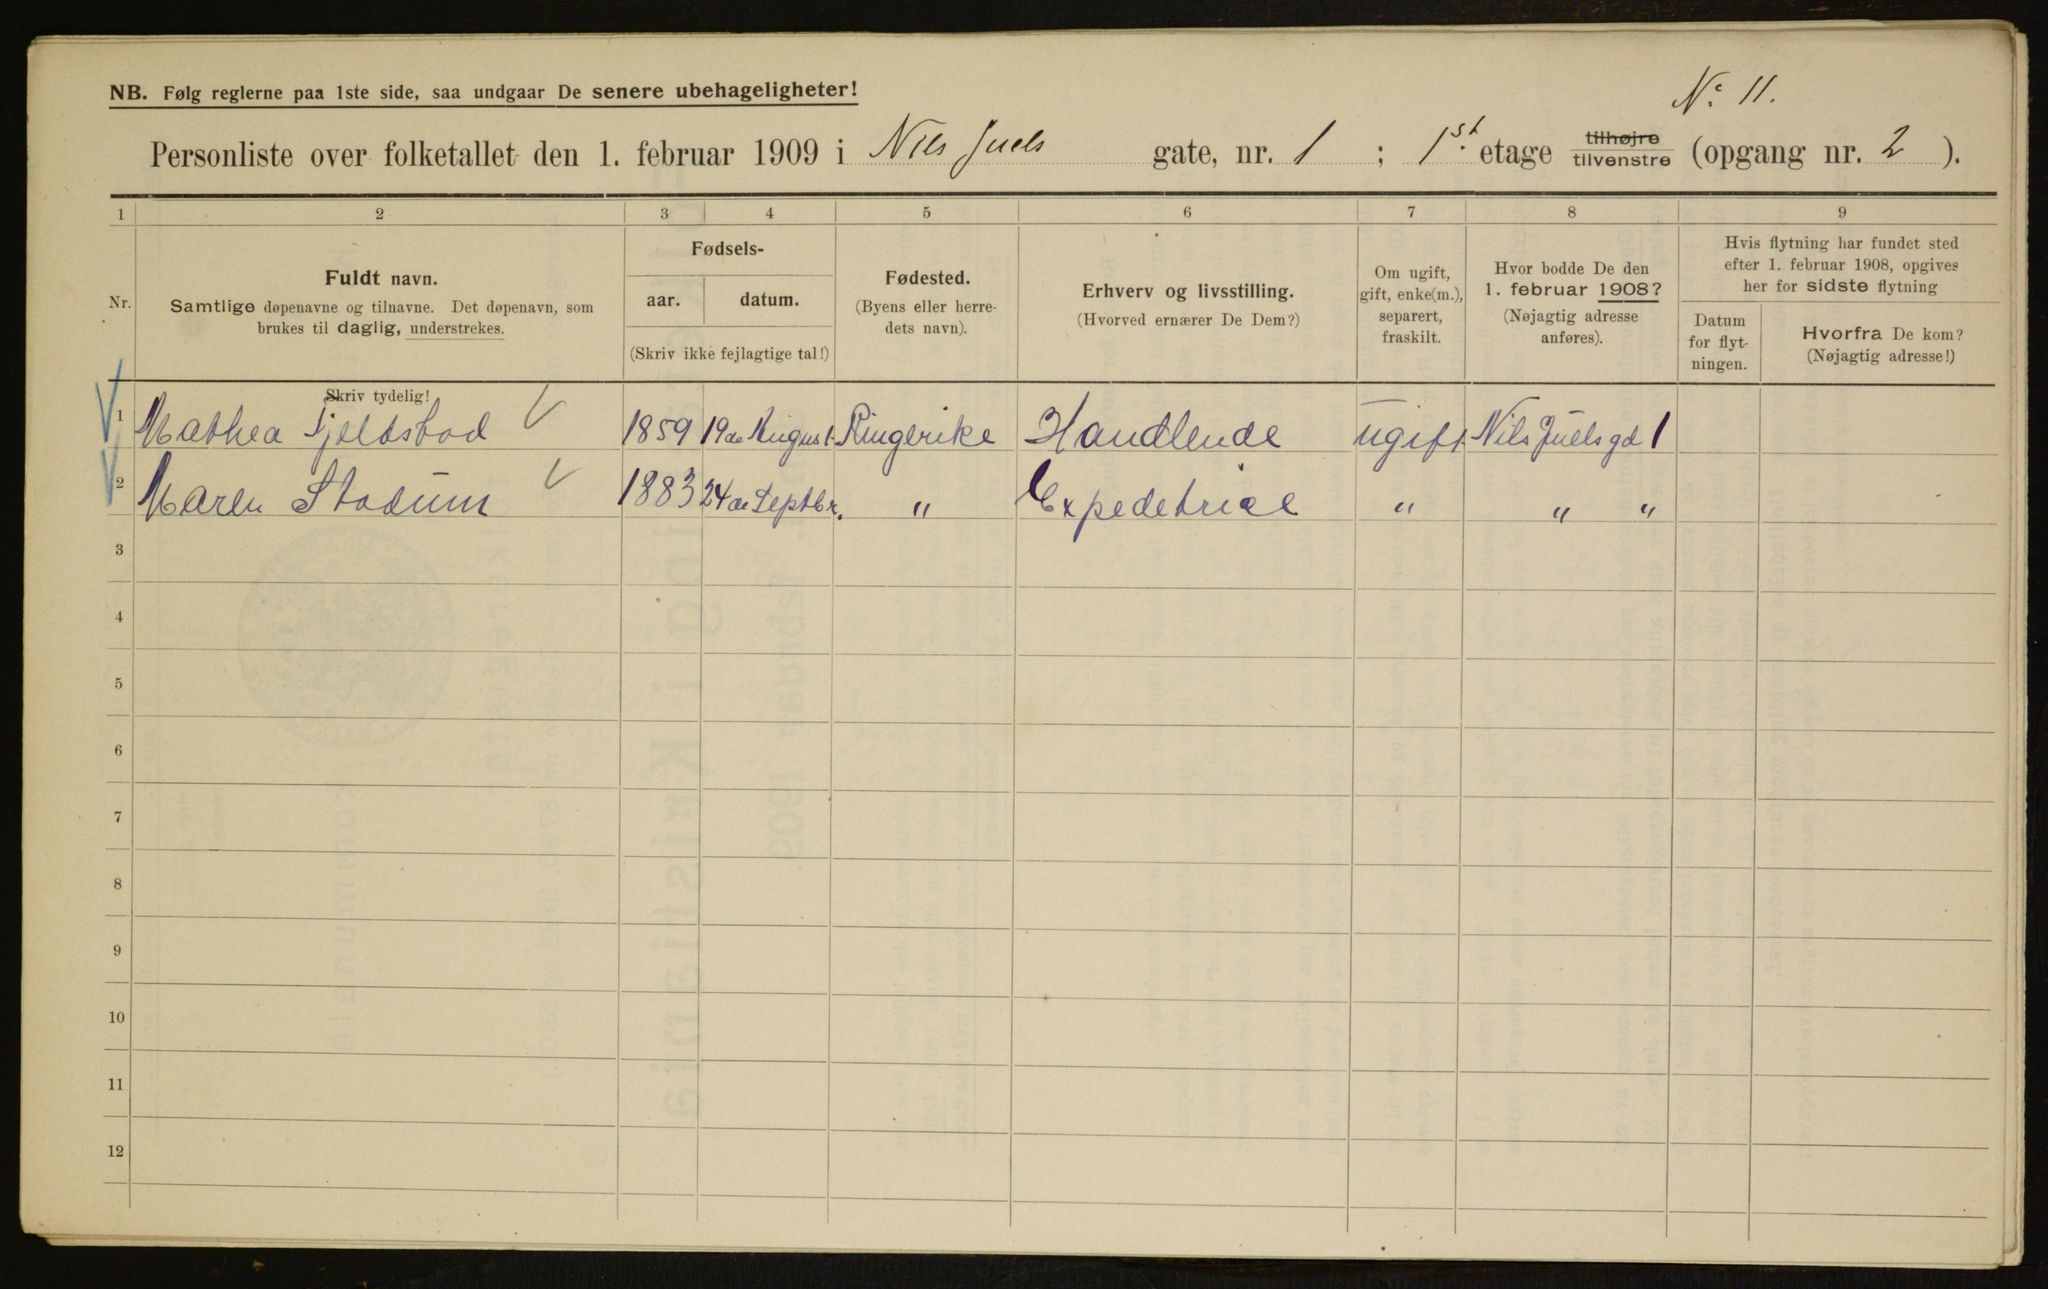 No 11.
NB. Følg reglerne paa 1ste side, saa undgaar De senere ubehageligheter!
Personliste over folketallet den 1. februar 1909 i Nils Juels gate, nr. 1 ; 1st. etage tilhøjre tilvenstre (opgang nr. 2 ).
1 2 3 4 5 6 7 8 9
Nr.
Fuldt navn.
Samtlige døpenavne og tilnavne. Det døpenavn, som
brukes til daglig, understrekes.
Fødsels-
aar. datum.
(Skriv ikke fejlagtige tal!)
Fødested.
(Byens eller herre-
dets navn).
Erhverv og livsstilling.
(Hvorved ernærer De Dem?)
Om ugift,
gift, enke(m.),
separert,
fraskilt.
Hvor bodde De den
1. februar 1908?
(Nøjagtig adresse
anføres).
Hvis flytning har fundet sted
efter 1. februar 1908, opgives
her for sidste flytning
Datum
for flyt-
ningen.
Hvorfra De kom?
(Nøjagtig adresse!)
Skriv tydelig!
1 Mathea Fjeldstad 1859 19de August Ringerike Handlende ugift Nils Juels gd 1
2 Maren Stadum 1883 24de Septbr. " Expedetrice " " "
3
4
5
6
7
8
9
10
11
12